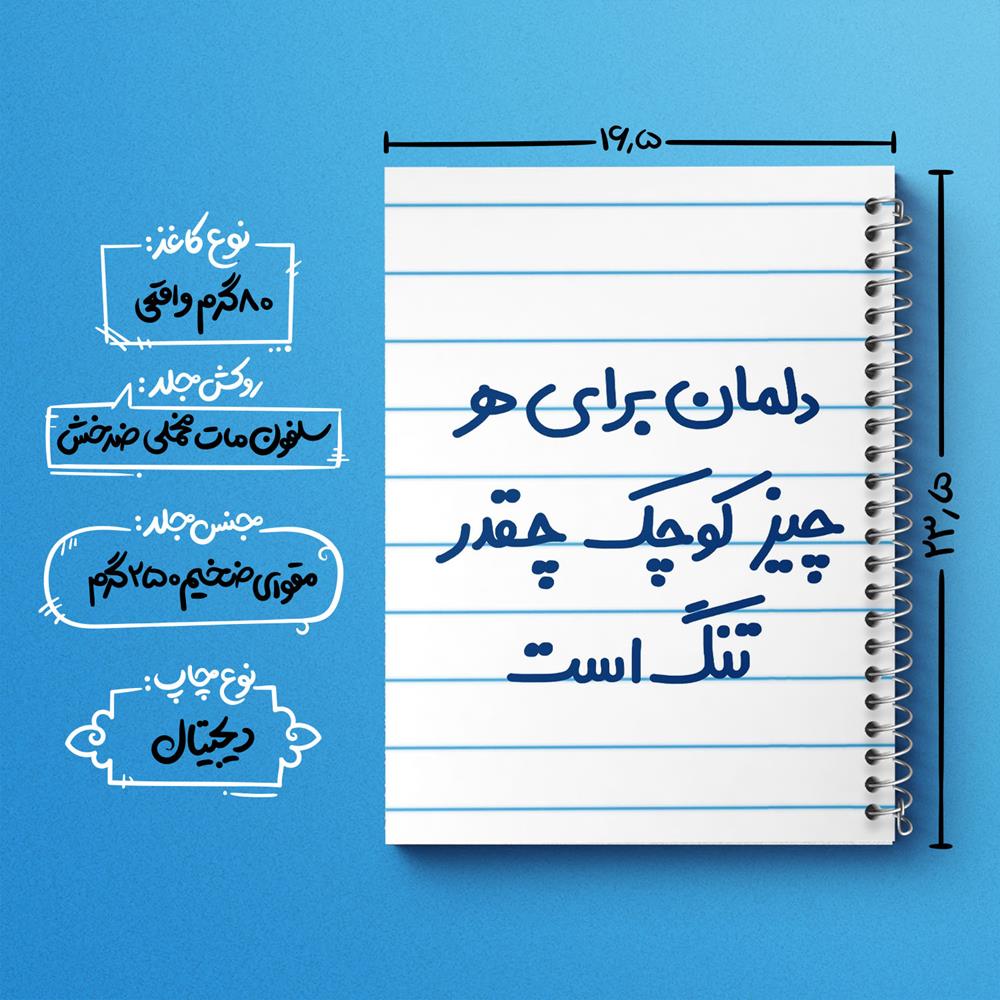 ۱۶٫۵
۲۳٫۵
دلمان برای هر
چیز کوچک چقدر
تنگ است
نوع کاغذ:
۸۰گرم واقعی
روکش جلد:
سلفون مات مخملی ضدخش
جنس جلد:
مقوای ضخیم ۲۵۰ گرم
نوع چاپ:
دیجیتال